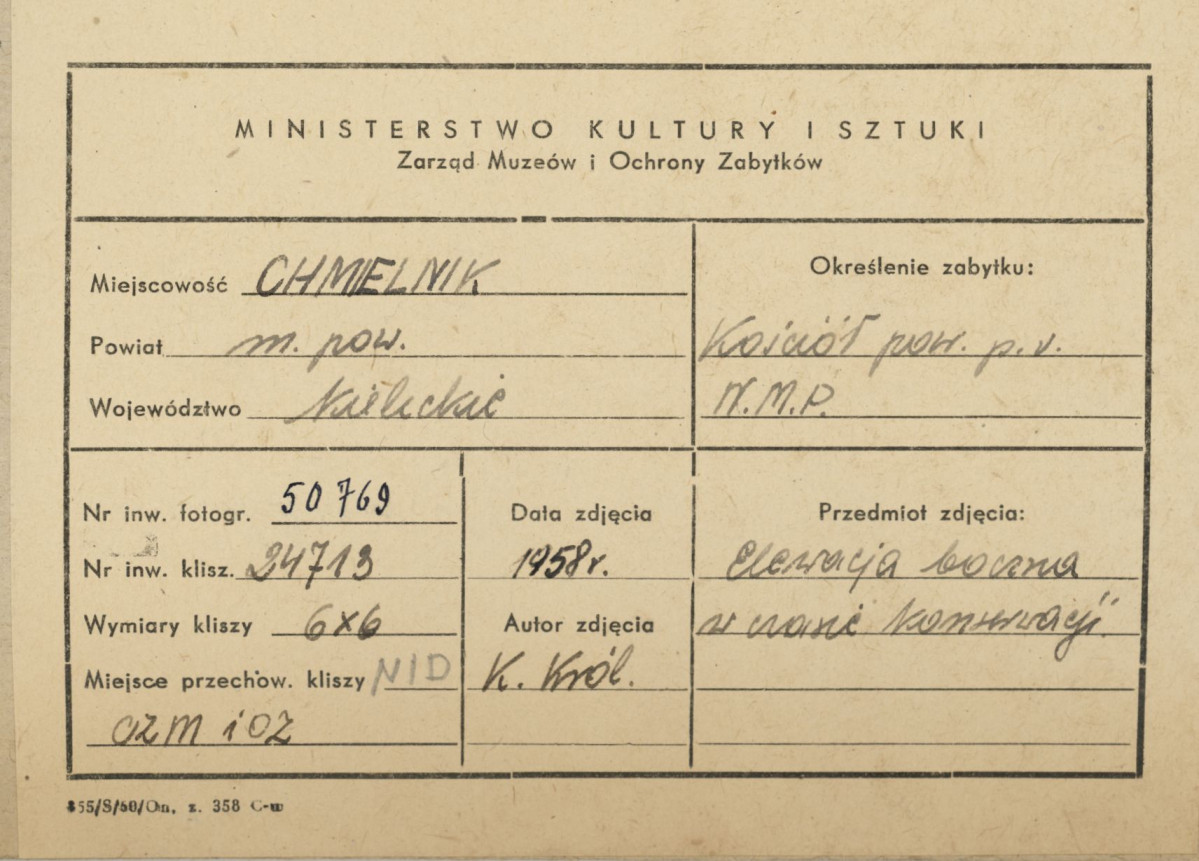 MINISTERSTWO KULTURY I SZTUKI
Zarząd Muzeów i Ochrony Zabytków
Miejscowość CHMIELNIK
Powiat m. pow.
Województwo kieleckie
Określenie zabytku:
Kościół par. p.w.
N.M.P.
Nr inw. fotogr. 50769
Nr inw. klisz. 24713
Wymiary kliszy 6x6
Miejsce przechow. kliszy NID
OZM i OZ
Data zdjęcia
1958r.
Autor zdjęcia
K. Król.
Przedmiot zdjęcia:
Elewacja boczna
w czasie konserwacji.
z. 358 C-w